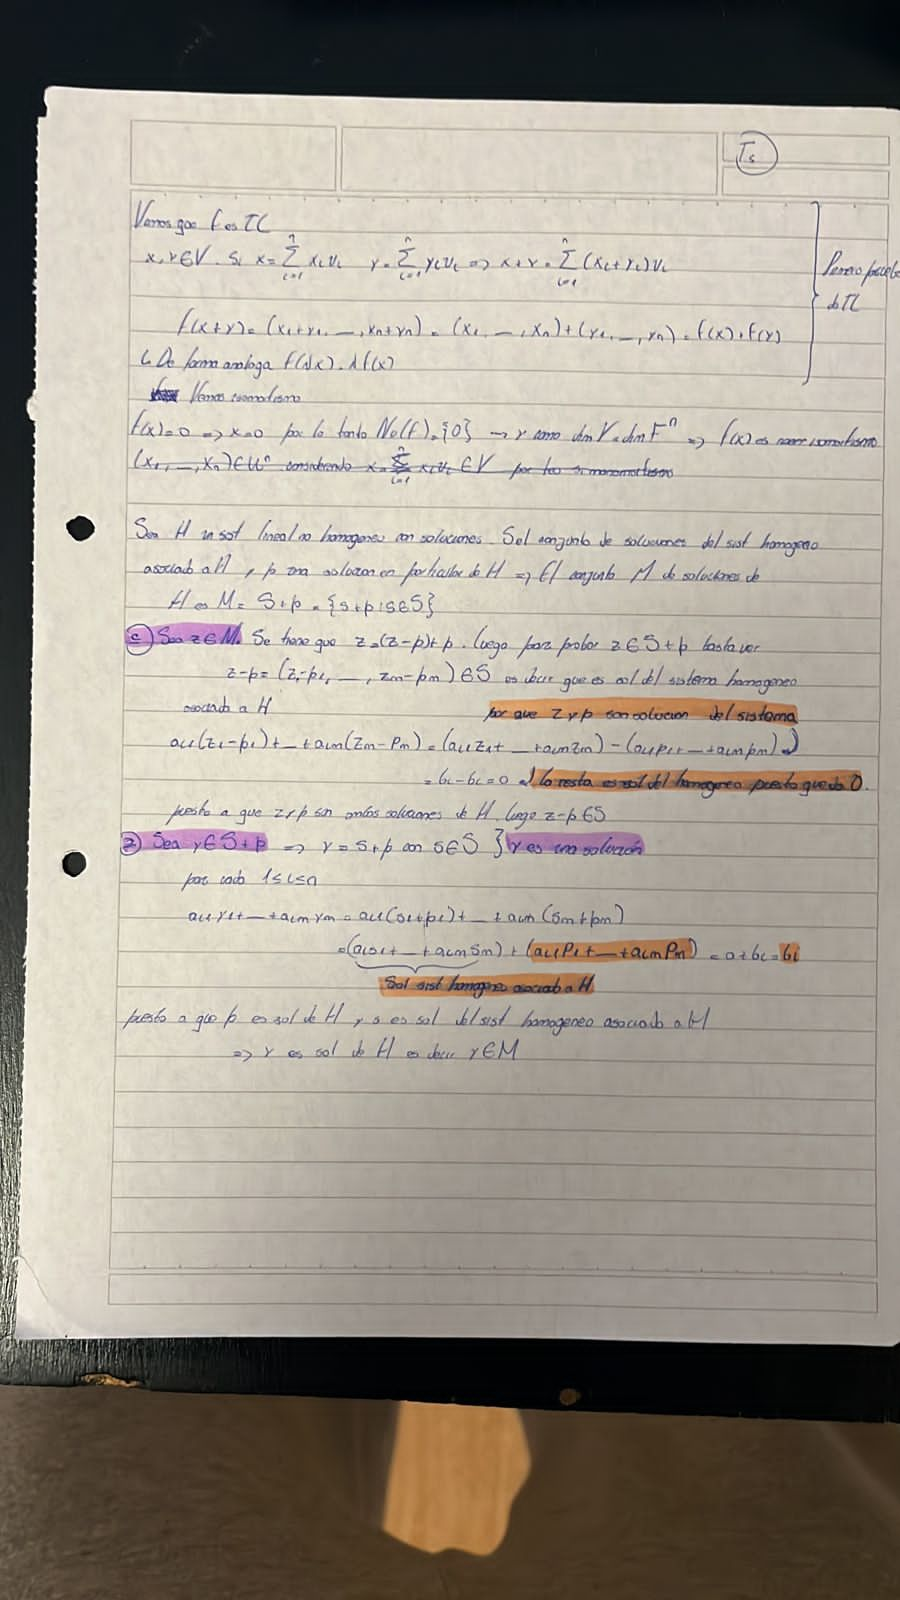 T5
Vemos que f es TL
x, y ∈ V. Si x = ∑_{i=1}^{n} xi vi   y = ∑_{i=1}^{n} yi vi => x+y = ∑_{i=1}^{n} (xi+yi) vi
f(x+y) = (x1+y1, _, xn+yn) = (x1, _, xn) + (y1, _, yn) = f(x) + f(y)
↳ De forma analoga f(λx) = λf(x)
de TL
Vemos isomorfismo
f(x)=0 => x=0 por lo tanto Nu(f) = {0} → y como dim V = dim F^n => f(x) es isomorfismo
(x1, _, xn) ∈ U^n considerando x = ∑_{i=1}^{n} xi vi ∈ V por
Sea H un sist lineal no homogeneo con soluciones. S el conjunto de soluciones del sist homogeneo
asociado a H, p una solucion en particular de H => El conjunto M de soluciones de
H es M = S+p = {s+p | s∈S}
Sea z ∈ M. Se tiene que z = (z-p)+p. Luego para probar z ∈ S+p basta ver
z-p = (z1-p1, _, zm-pm) ∈ S es decir que es sol del sistema homogeneo
asociado a H   por que z y p son solucion del sistema
ai1(z1-p1)+_+aim(zm-pm) = (ai1z1+_+aimzm) - (ai1p1+_+aimpm)
= bi-bi = 0 la resta es sol del homogeneo puesto que da 0.
puesto a que z y p son ambos soluciones de H. Luego z-p ∈ S
② Sea y ∈ S+p => y = s+p con s∈S } y es una solución
para cada 1≤i≤n
ai1y1+_+aimym = ai1(s1+p1)+_+aim(sm+pm)
= (ai1s1+_+aimsm) + (ai1p1+_+aimpm) = 0+bi = bi
Sol sist homogeneo asociado a H
puesto a que p es sol de H y s es sol del sist homogeneo asociado a H
=> y es sol de H es decir y ∈ M